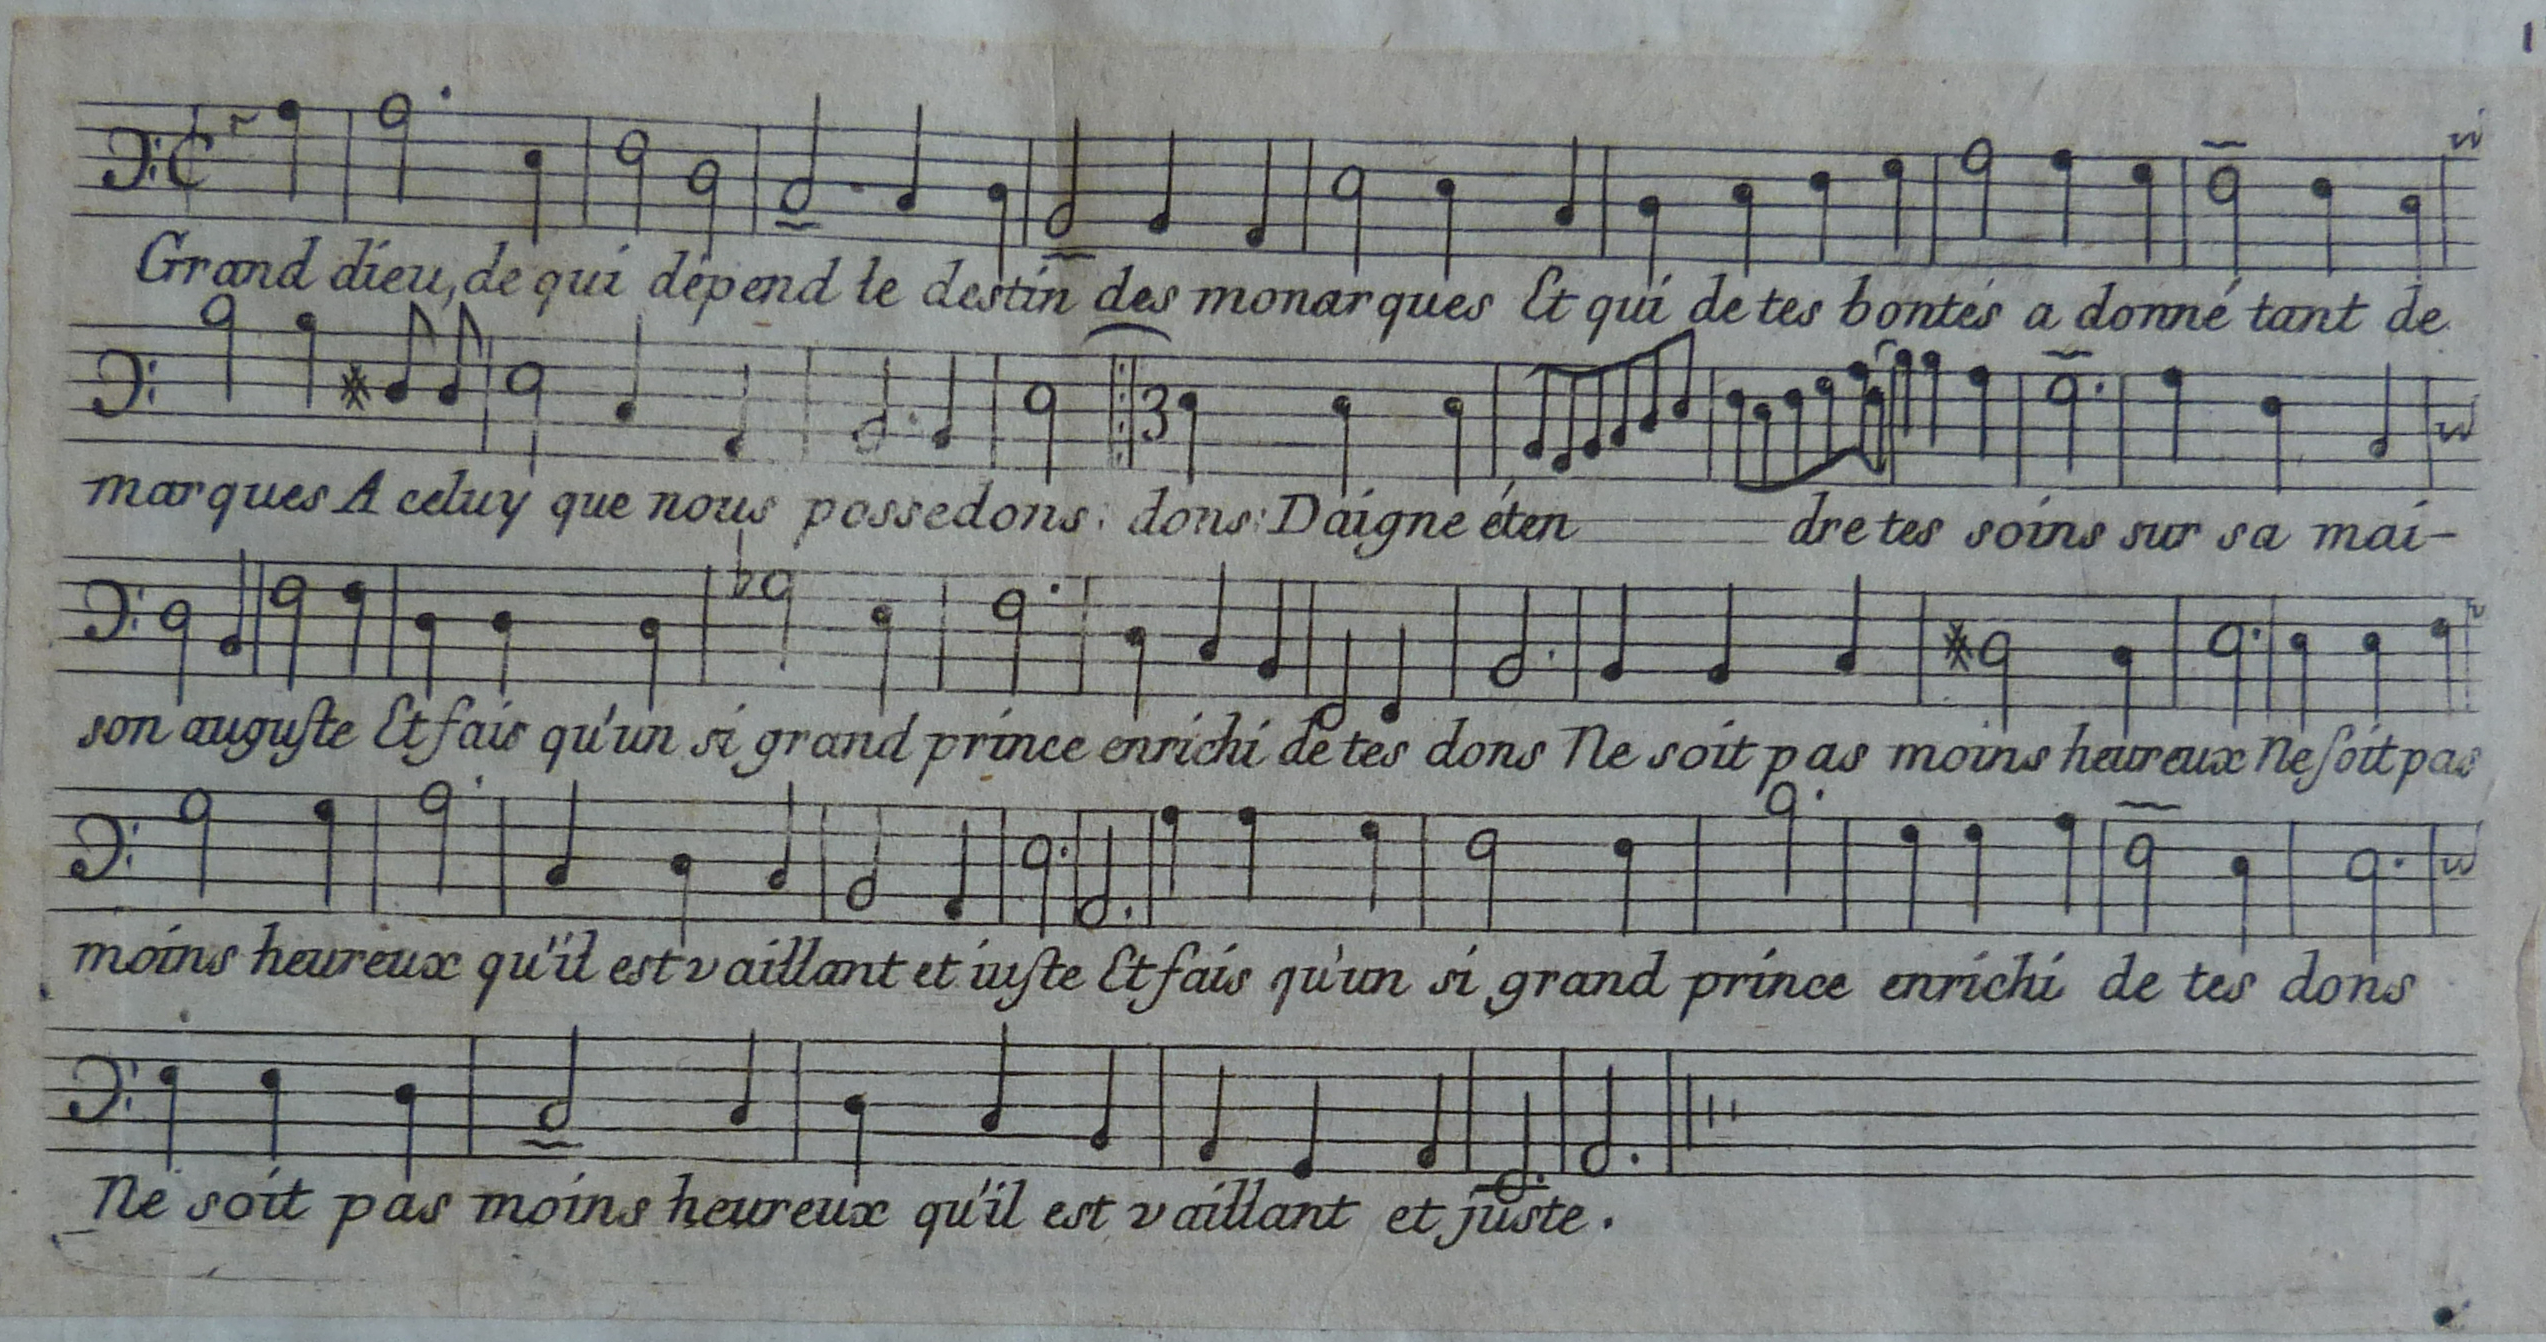 1
Grand dieu, de qui dépend le destin des monarques Et qui de tes bontés a donné tant de
3
marques A celuy que nous possedons: dons: Daigne éten dre tes soins sur sa mai-
son auguste Et fais qu'un si grand prince enrichi de tes dons Ne soit pas moins heureux Ne soit pas
moins heureux qu'il est vaillant et iuste Et fais qu'un si grand prince enrichi de tes dons
Ne soit pas moins heureux qu'il est vaillant et juste.